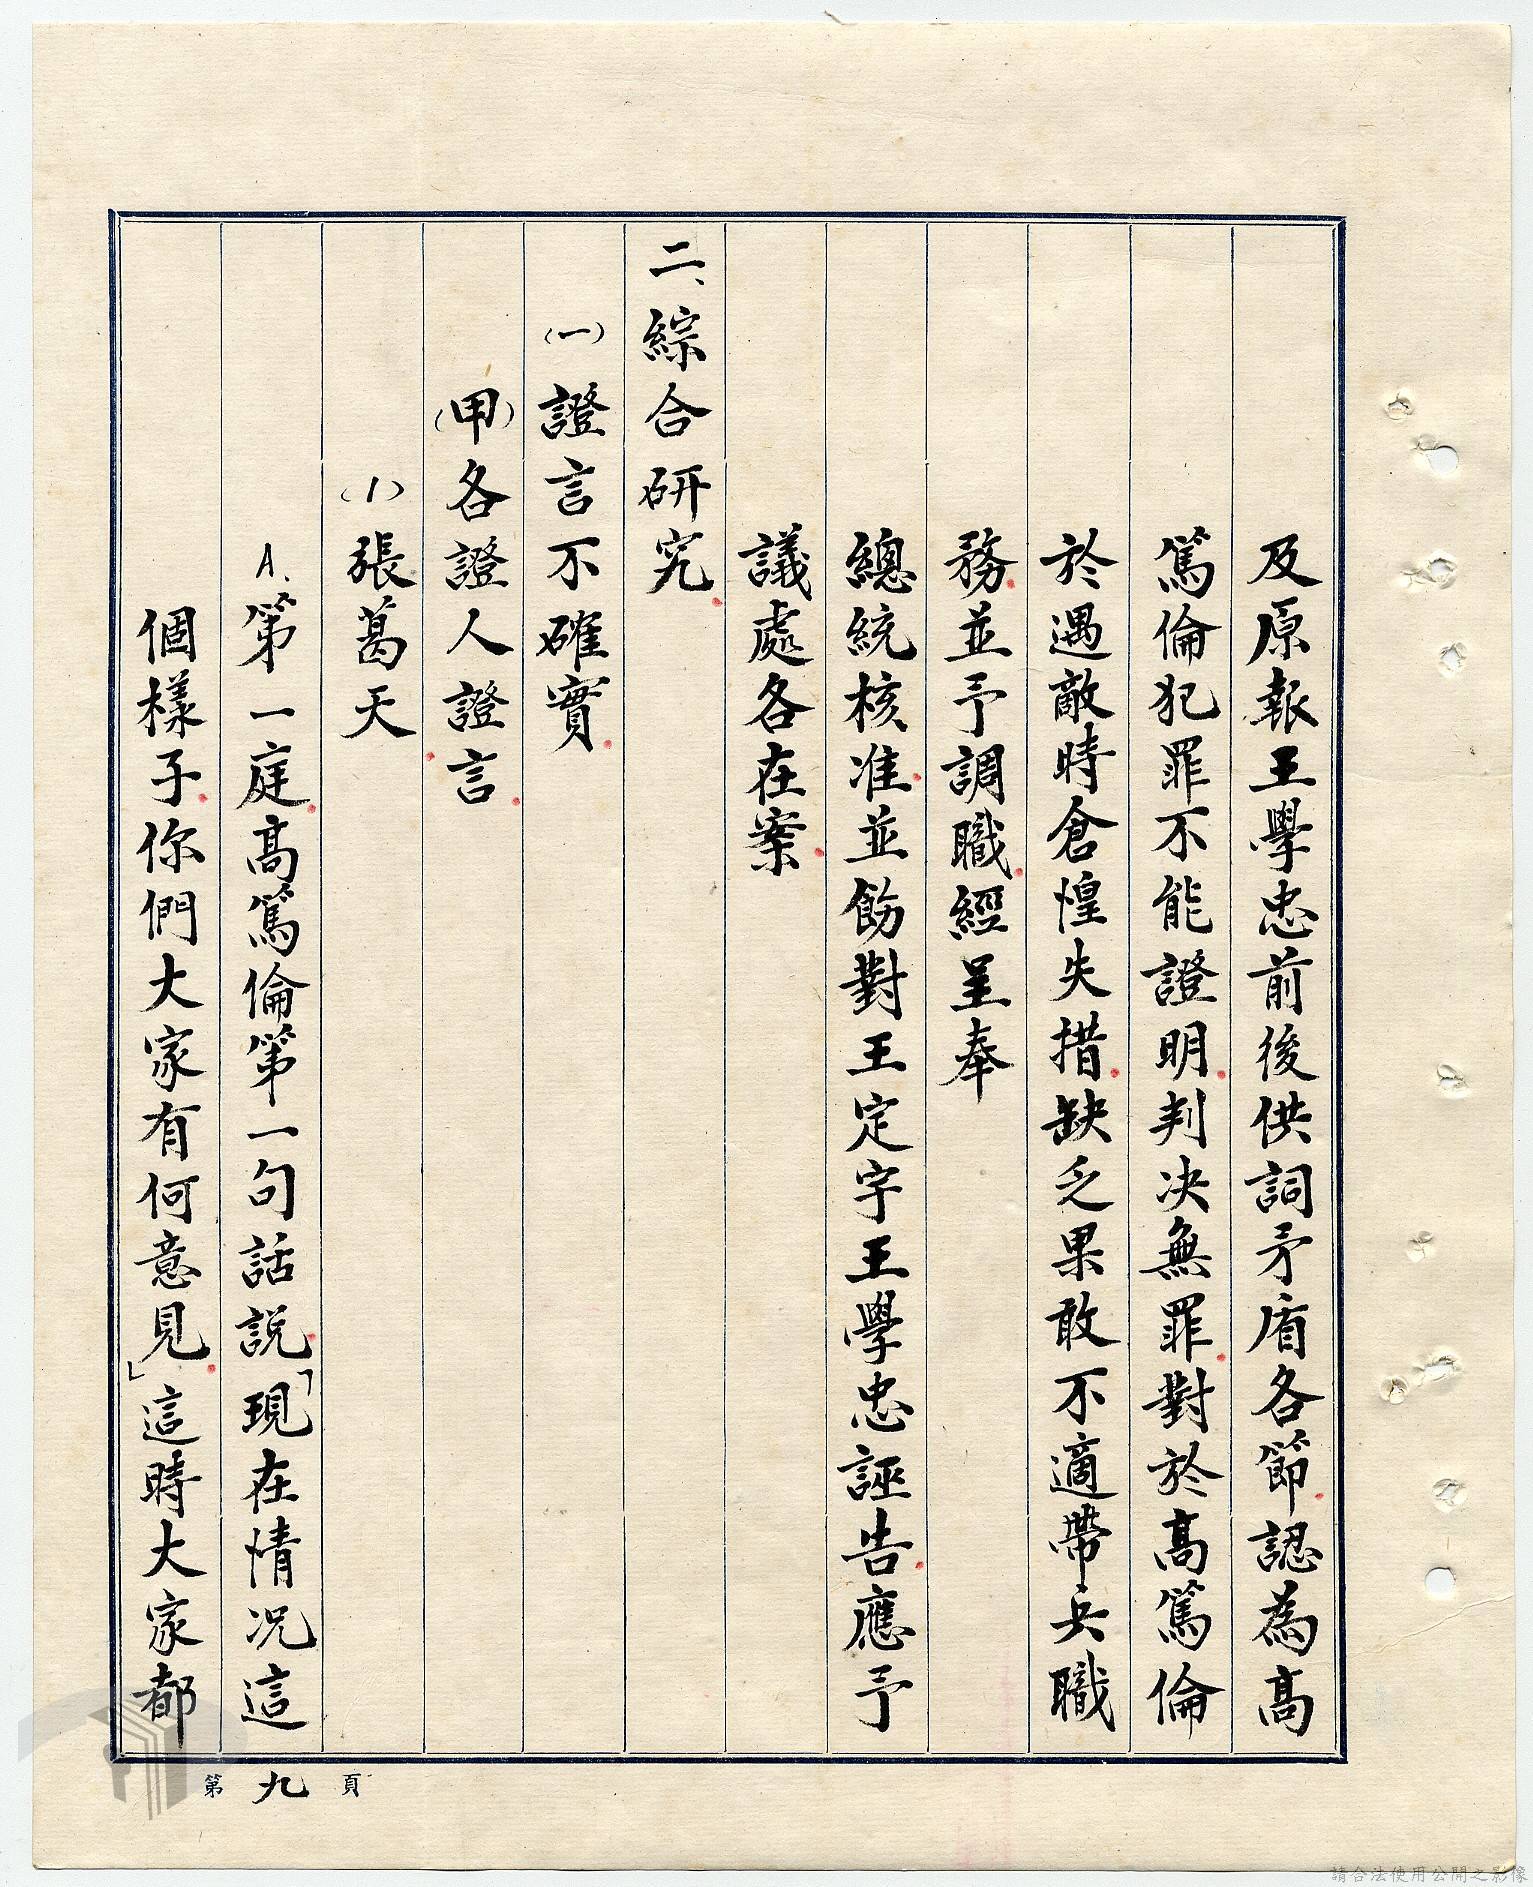 及原報王學忠前後供詞矛盾各節認為高
篤倫犯罪不能證明判決無罪對於高篤倫
於遇敵時倉惶失措缺乏果敢不適帶兵職
務並予調職經呈奉
總統核准並飭對王定宇王學忠誣告應予
議處各在案
二、綜合研究
(一)證言不確實
(甲)各證人證言
(1)張葛天
A、第一庭高篤倫第一句話說「現在情况這
個樣子你們大家有何意見」這時大家都
第九頁
請合法使用公開之影像